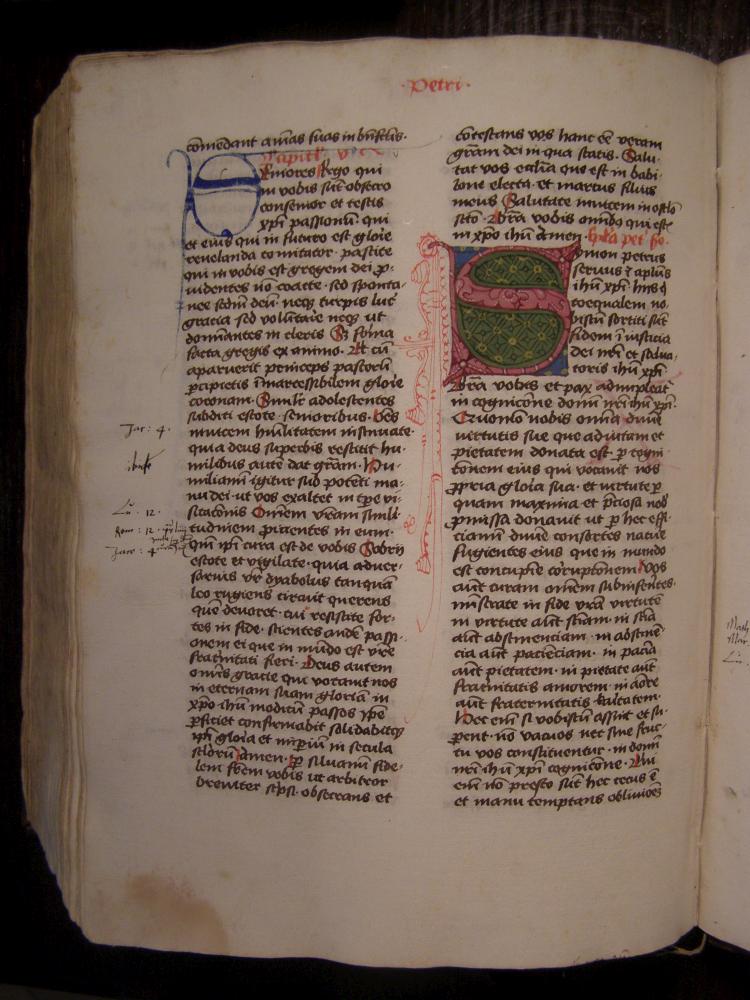 ·Petri·
comēdant aīas suas in bn̄fctis·
Capitl'm V
Seniores ergo qui
in vobis sūt obsecro
consenior et testis
xp̄i passionū qui
et eius qui in futuro est glōie
revelanda cōicator· pascite
qui in vobis est gregem dei p̱·
uidentes nō coacte· sed sponta·
nee scdm̄ deū· neq̨ turpis luc̄
gracia sed volūtaie neq̨ ut
domīantes in cleris Sꝫ forma
facta gregis ex animo· Et cū
aparuerit princeps pastorū
p̱cipietis īmarcessibilem glōie
coronam· Similr̄ adolescentes
subditi estote senioribus· Oēs
inuicem hūilitatem insinuate·
quia deus superbis resistit hu·
milibus autē dat grām· Hu·
miliamī igitur sub potēti ma·
nu dei· ut vos exaltet in tp̄e vi·
sitacōnis Omnem vr̄am sūili·
tudinem proicientes in eum·
qm̄ ip̄i cura est de vobis Sobrij
estote et vigilate· quia aduer·
sarius vr̄ dyabolus tanquā
leo rugiens circuit querens
quē devoret· cui resistite for·
tes in fide· scientes eandē passi·
onem ei que in mūdo est vr̄e
fraternitati fieri· Deus autem
om̄is gracie qui vocauit nos
in eternam suam gloriā in
xp̄o ihū modicū passos ip̄e
p̱ficiet confirmabit solidabitq̨
ip̄i glōia et imperiū in secula
sclōrū amen· P̱ siluanū fide·
lem frēm vobis ut arbitror
breviter scp̄si· obsecrans et
Jac: 4·
ibidē
Lu· 12·
Rom: 12·
Jaco: 4
cōtestans vos hanc eē veram
grām dei in qua statis· Salu·
tat vos ecclīa que est in babi·
lone electa· et marcus filius
meus Salutate inuicem in osclō
scto· Grā vobis omībꝫ qui estis
in xp̄o ihū Amen·
Simon petrus
seruus ⁊ apl̄us
ihū xp̄i hijs q̄
coequalem no·
biscū sortiti sūt
fidem ī iusticia
dei nr̄i et salua·
toris ihū xp̄i·
Grā vobis et pax adimpleat̄
in cognicōne domī nr̄i ihū xp̄i·
Quom̄o nobis om̄ia diuīe
virtutis sue que ad uitam et
pietatem donata est· p̱ cogni·
tonem eius qui vocauit nos
p̱pria glōia sua· et virtute p̱
quam maxima et p̄ciosa nob̄
p̱missa donauit ut p̱ hec effi·
ciamī diuīe consortes nature
fugientes eius que in mundo
est concupīe corupcōnem Vos
aūt curam om̄em subinferētes·
ministrate in fide vr̄a virtutē
in virtute aūt sciam· in sciā
aūt abstinenciam· in abstinē·
cia aūt pacienciam· in paciā
aūt pietatem· in pietate aūt
fraternitatis amorem· in aōre
aūt fraternitatis karitatem·
Hec em̄ si vobiscū assint et su·
perent· nō vacuos nec sine fruc·
tu vos constituentur· in domī
nr̄i ihū xp̄i cognicōne· Cui
em̄ nō presto sūt hec cecus ē
et manu temptans obliuiōes